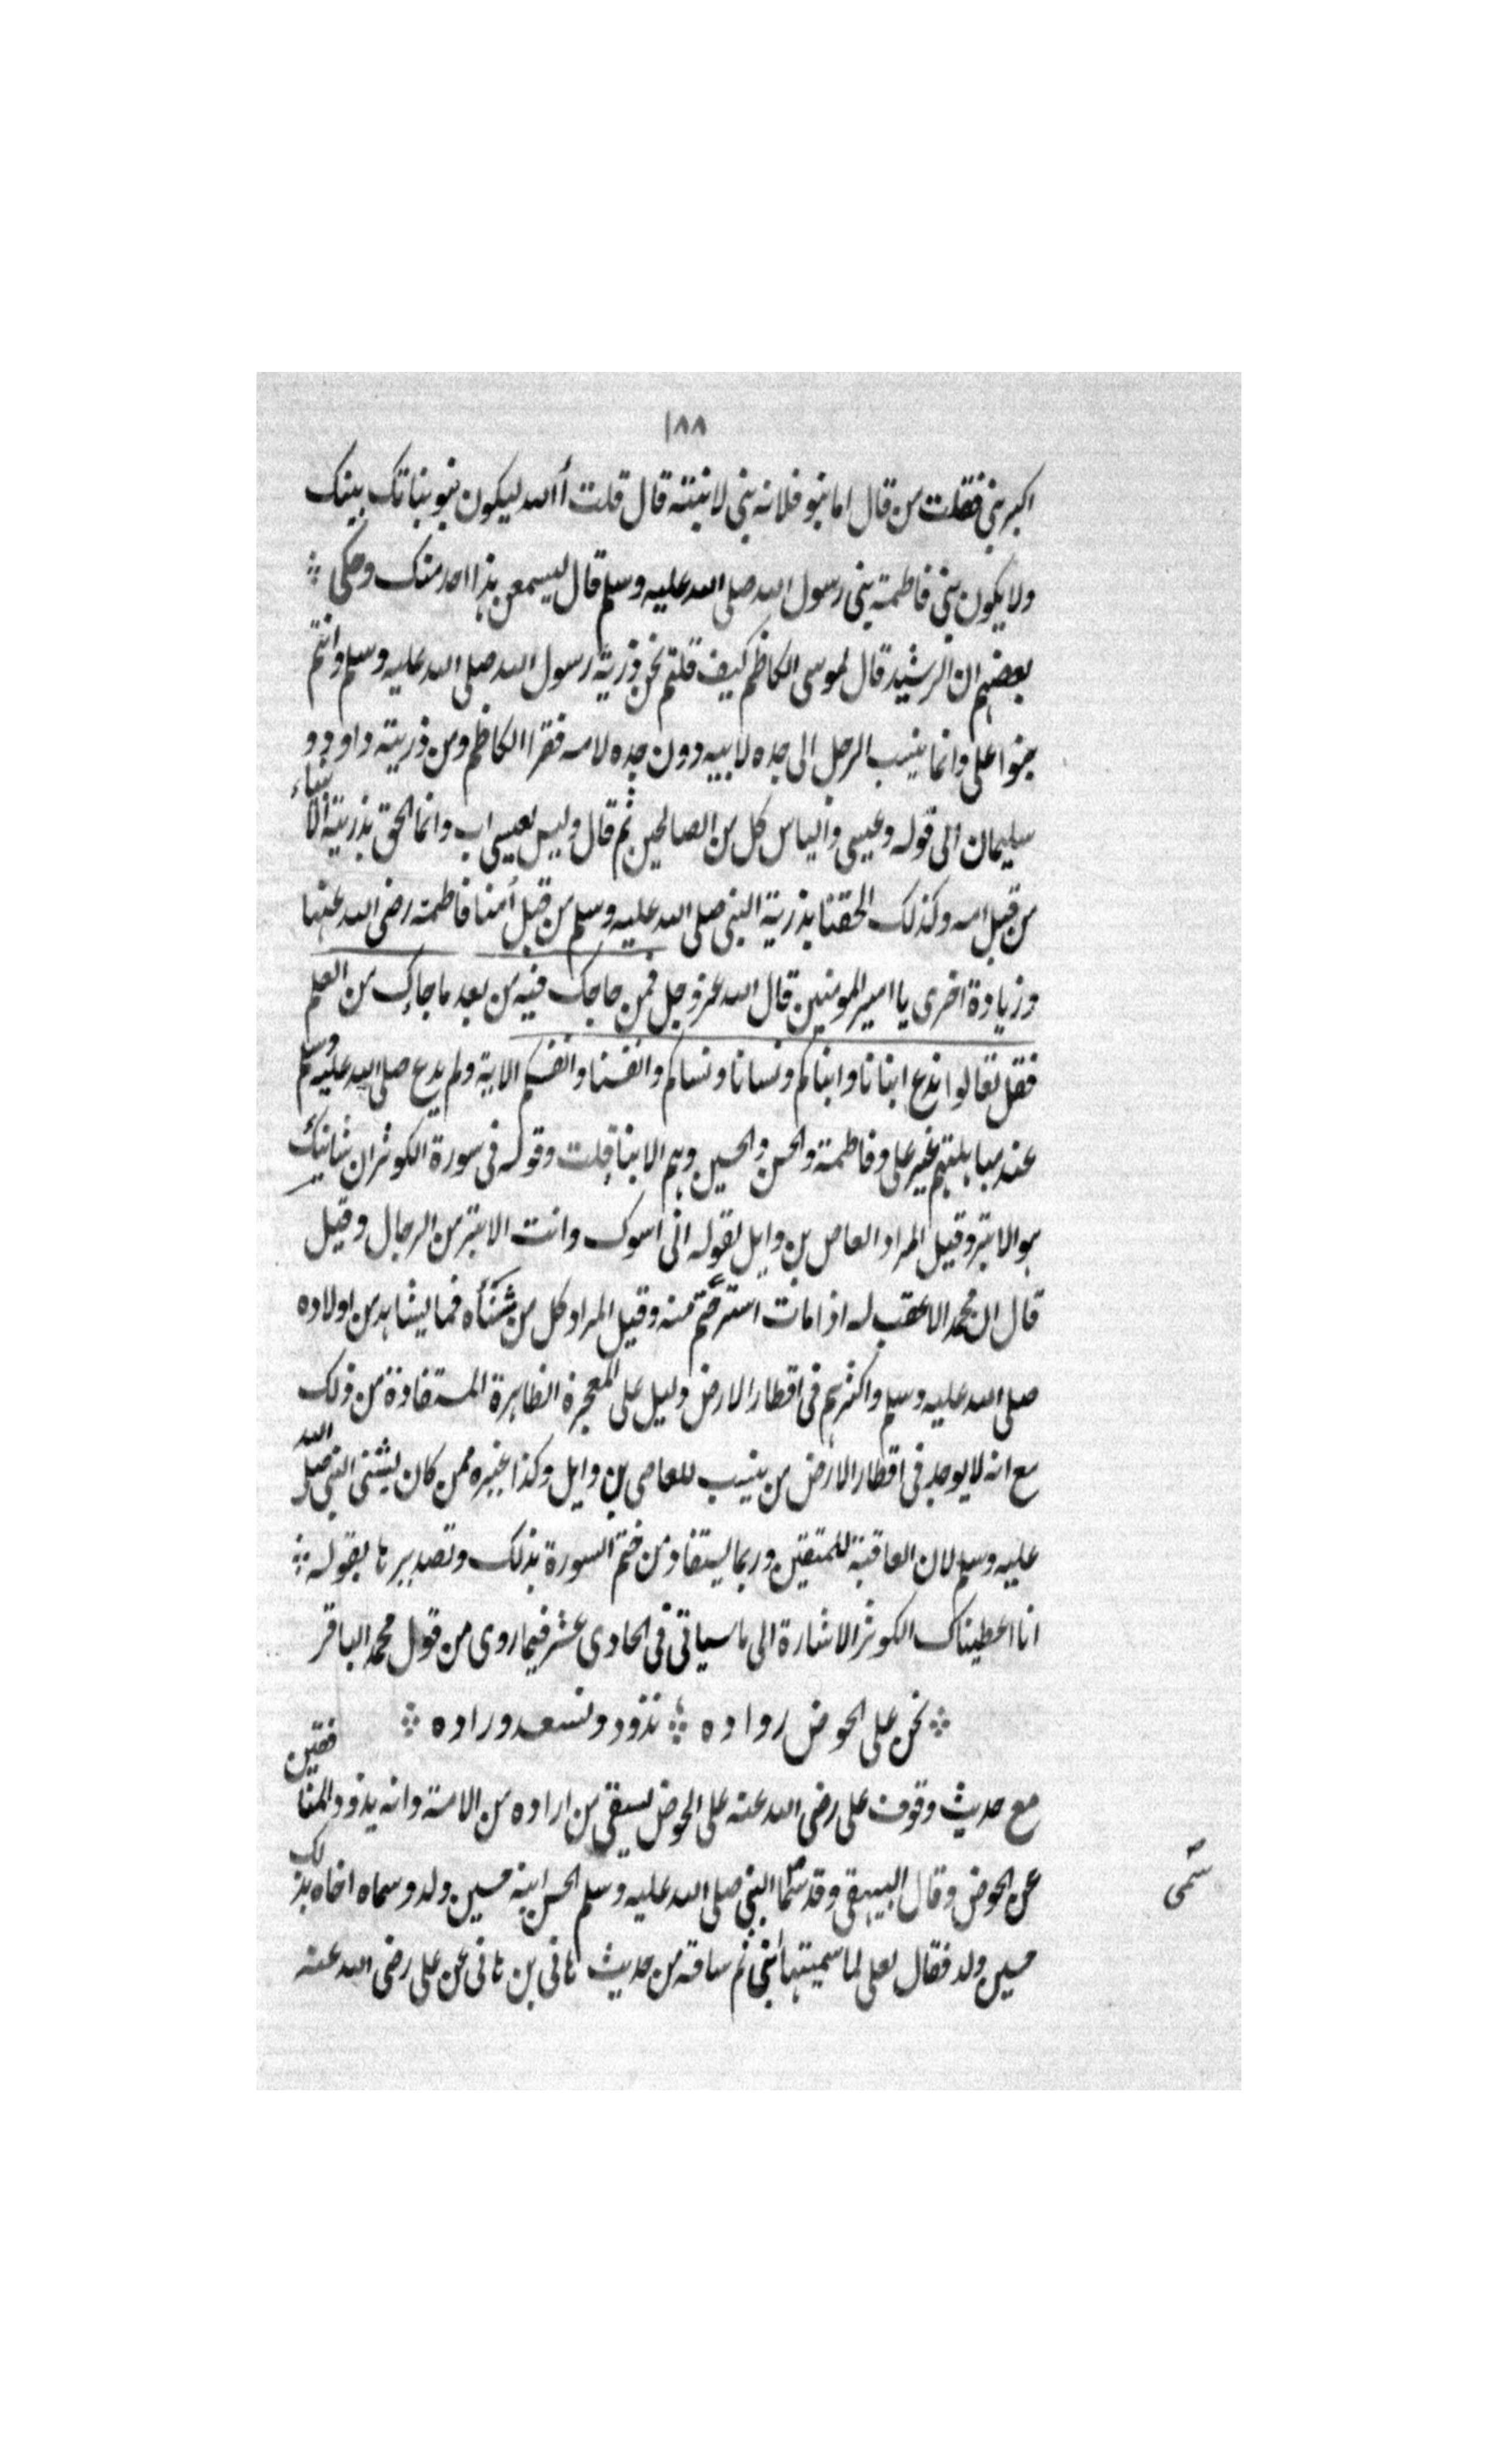 ١٨٨
اكبر بنى فقلت من قال اما بنو فلانه بنى لا بنته قال قلت أالله ليكون بنو بناتك بينك
ولا يكون بنى فاطمة بنى رسول الله صلى الله عليه وسلم قال ليسمعن هذا احد منك وحكى
بعضهم ان الرشيد قال لموسى الكاظم كيف قلتم نحن ذرية رسول الله صلى الله عليه وسلم وانتم
بنوا على وانما ينسب الرجل الى جده لابيه دون جده لامه فقرا الكاظم ومن ذريته داود و
سليمان الى قوله وعيسى والياس كل من الصالحين ثم قال وليس لعيسى اب وانما الحق بذرية الانبياء
من قبل امه وكذلك الحقنا بذرية النبى صلى الله عليه وسلم من قبل أمنا فاطمة رضى الله عنها
وزيادة اخرى يا امير المومنين قال الله عز وجل فمن حاجك فيه من بعد ما جاءك من العلم
فقل تعالوا ندع ابنانا وابناكم ونسانا ونساكم وانفسنا وانفسكم الاية ولم يدع صلى الله عليه وسلم
عند مباهلتهم غير على وفاطمة والحسن والحسين وهم الابنا قلت وقوله فى سورة الكوثر ان شانئك
هو الابتر وقيل المراد العاص بن وايل لقوله انى اسوك وانت الابتر من الرجال وقيل
قال ان محمد الاعقب له اذا مات استرحتم منه وقيل المراد كل من شنأه فما يشاهد من اولاده
صلى الله عليه وسلم واكثرهم فى اقطار الارض دليل على المعجزة الظاهرة المستفادة من ذلك
مع انه لا يوجد فى اقطار الأرض من ينسب للعاصى بن وايل وكذا غيره ممن كان يشنى النبى صلى الله
عليه وسلم لان العاقبة للمتقين وربما يستفاد من ختم السورة بذلك وتصديرها بقوله
انا اعطيناك الكوثر الاشارة الى ما سياتى فى الحادى عشر فيما روى من قول محمد الباقر
نحن على الحوض رواده نذود ونسعد وراده
مع حديث وقوف على رضى الله عنه على الحوض ليسقى من اراده من الامة وانه يذود المنافقين
عن الحوض وقال البيهقى وقد سما النبى صلى الله عليه وسلم الحسن ابنه حسين ولد وسماه اخاه بذلك
سمى
حسين ولد فقال لعلى لما سميتها ابنى ثم ساقه من حديث هانى بن هانى عن على رضى الله عنه